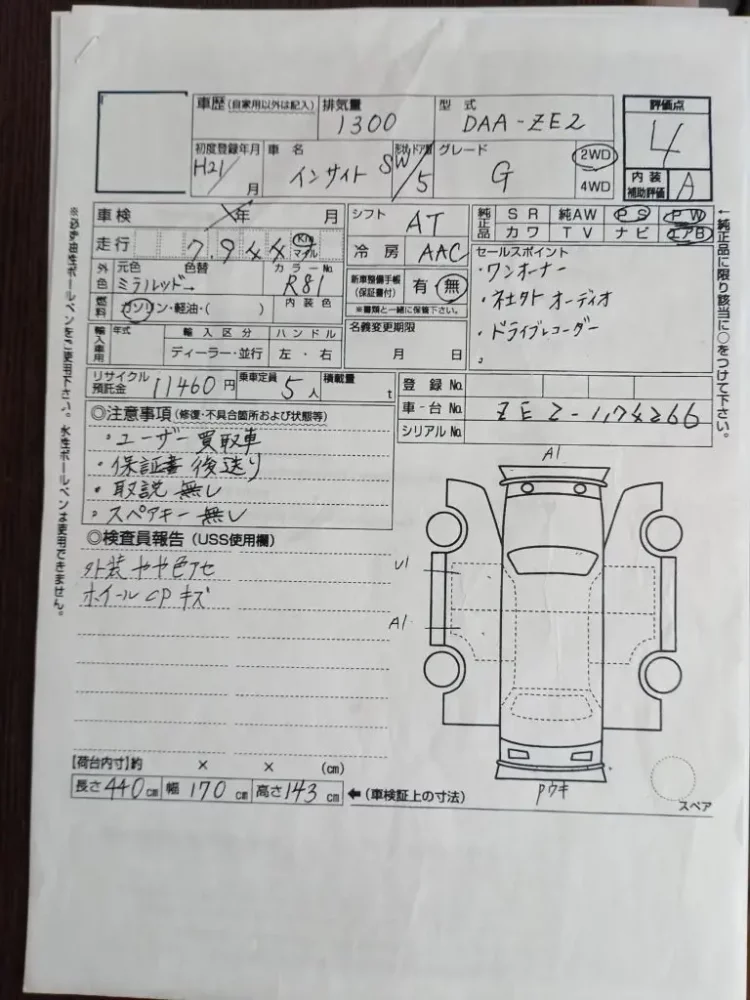 車歴(自家用以外は記入) 排気量 型式 評価点
1300 DAA-ZE2 4
初度登録年月 車名 形状 ドア数 グレード 2WD 4WD 内装補助評価 A
H21/ 月 インサイト SW/5 G
車検 年 月 シフト AT 純正品 SR 純AW PS PW
カワ TV ナビ エアB
走行 7,944 Km マイル 冷房 AAC セールスポイント
外色 元色 色替 カラーNo.
ミラノレッド→ R81
新車整備手帳(保証書付) 有・無
※書類と一緒に保管下さい。
・ワンオーナー
・社外オーディオ
・ドライブレコーダー
燃料 ガソリン・軽油・( ) 内装色
輸入車用 年式 輸入区分 ハンドル 名義変更期限
ディーラー・並行 左・右 月 日
リサイクル預託金 11460円 乗車定員 5人 積載量 t 登録No.
車台No.
シリアルNo.
◎注意事項(修復・不具合箇所および状態等)
・ユーザー買取車
・保証書後送り
・取説無し
・スペアキー無し
◎検査員報告(USS使用欄)
外装やや色アセ
ホイールCPキズ
A1
U1
A1
Pウキ
スペア
【荷台内寸】約 × × (cm)
長さ440cm 幅170cm 高さ143cm ←(車検証上の寸法)
※必ず油性ボールペンをご使用下さい。水性ボールペンは使用できません。
←純正品に限り該当に○をつけて下さい。